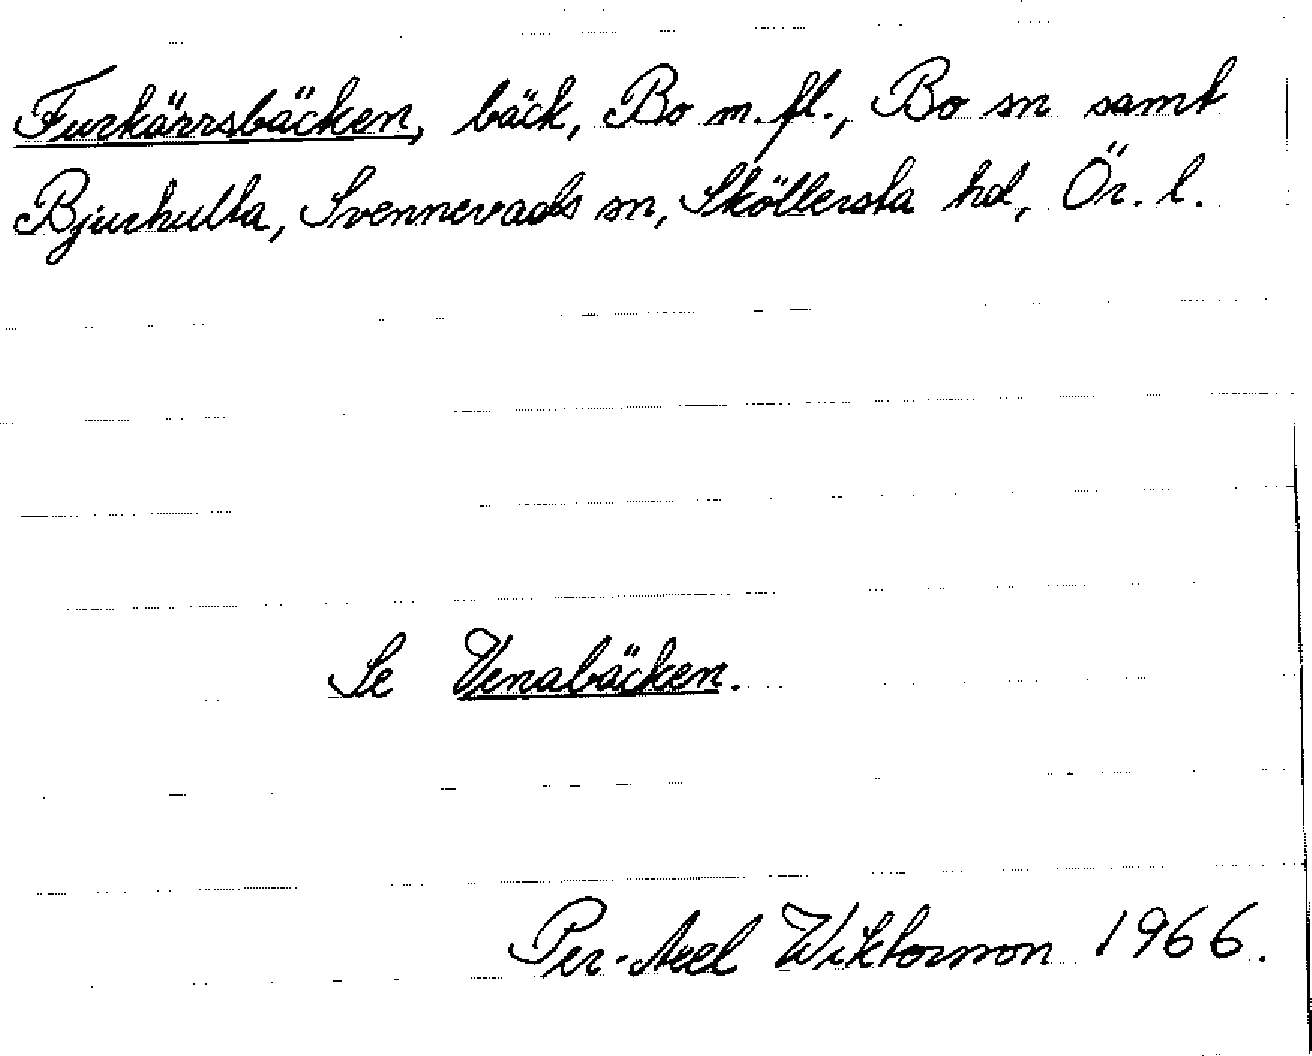 Furkärrsbäcken, bäck, Bo m. fl., Bo sn samt
Bjurhulta, Svennevads sn, Sköllersta hd, Ör. l.
Se Venabäcken.
Per-Axel Wiktorsson 1966.